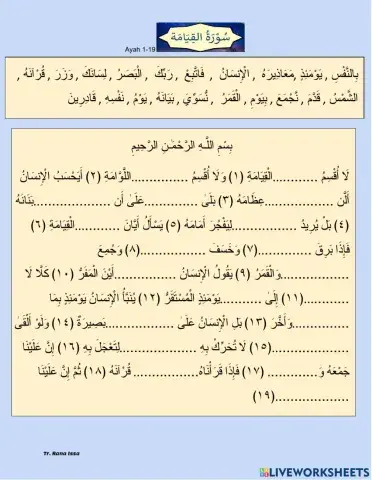 سُوْرَةُ القِيَامَة
Ayah 1-19
بِالنَّفْسِ , يَوْمَئِذٍ ,مَعَاذِيرَهُ , الإِنسَانُ , فَاتَّبِعْ , رَبِّكَ , الْبَصَرُ , لِسَانَكَ , وَزَرَ , قُرْآنَهُ ,
الشَّمْسُ , قَدَّمَ , نَّجْمَعَ , بِيَوْمِ , الْقَمَرُ , نُّسَوِّيَ , بَيَانَهُ , يَوْمُ , نَفْسِهِ , قَادِرِينَ
بِسْمِ اللَّـهِ الرَّحْمَـٰنِ الرَّحِيمِ
لَا أُقْسِمُ ............الْقِيَامَةِ (١) وَلَا أُقْسِمُ ...............اللَّوَّامَةِ (٢) أَيَحْسَبُ الْإِنسَانُ
أَلَّن ...................عِظَامَهُ (٣) بَلَىٰ ................عَلَىٰ أَن ....................بَنَانَهُ
(٤) بَلْ يُرِيدُ ..................لِيَفْجُرَ أَمَامَهُ (٥) يَسْأَلُ أَيَّانَ ............الْقِيَامَةِ (٦)
فَإِذَا بَرِقَ ................(٧) وَخَسَفَ ..................(٨) وَجُمِعَ
..................وَالْقَمَرُ (٩) يَقُولُ الْإِنسَانُ ................أَيْنَ الْمَفَرُّ (١٠) كَلَّا لَا
....................(١١) إِلَىٰ ..............يَوْمَئِذٍ الْمُسْتَقَرُّ (١٢) يُنَبَّأُ الْإِنسَانُ يَوْمَئِذٍ بِمَا
..................وَأَخَّرَ (١٣) بَلِ الْإِنسَانُ عَلَىٰ ..................بَصِيرَةٌ (١٤) وَلَوْ أَلْقَىٰ
....................(١٥) لَا تُحَرِّكْ بِهِ ....................لِتَعْجَلَ بِهِ (١٦) إِنَّ عَلَيْنَا
جَمْعَهُ وَ.............. (١٧) فَإِذَا قَرَأْنَاهُ.................. قُرْآنَهُ (١٨) ثُمَّ إِنَّ عَلَيْنَا
....................(١٩)
Tr. Rana Issa
LIVEWORKSHEETS